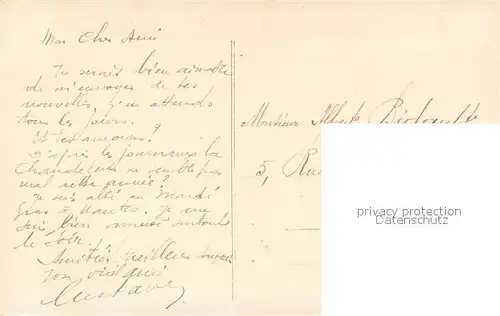 Mon Cher Ami
Tu serais bien aimable
de m'envoyer de tes
nouvelles, j'en attends
tous les jours.
Et tes amours?
D'après les journaux la
Chandeleur ne semble pas
mal cette année?
Je suis allé au Mardi
Gras à Nantes. Je me
suis bien amusé surtout
le soir.
Amitiés
ton vieil ami
Gustave
Monsieur Albert
5, Rue
copyright protected